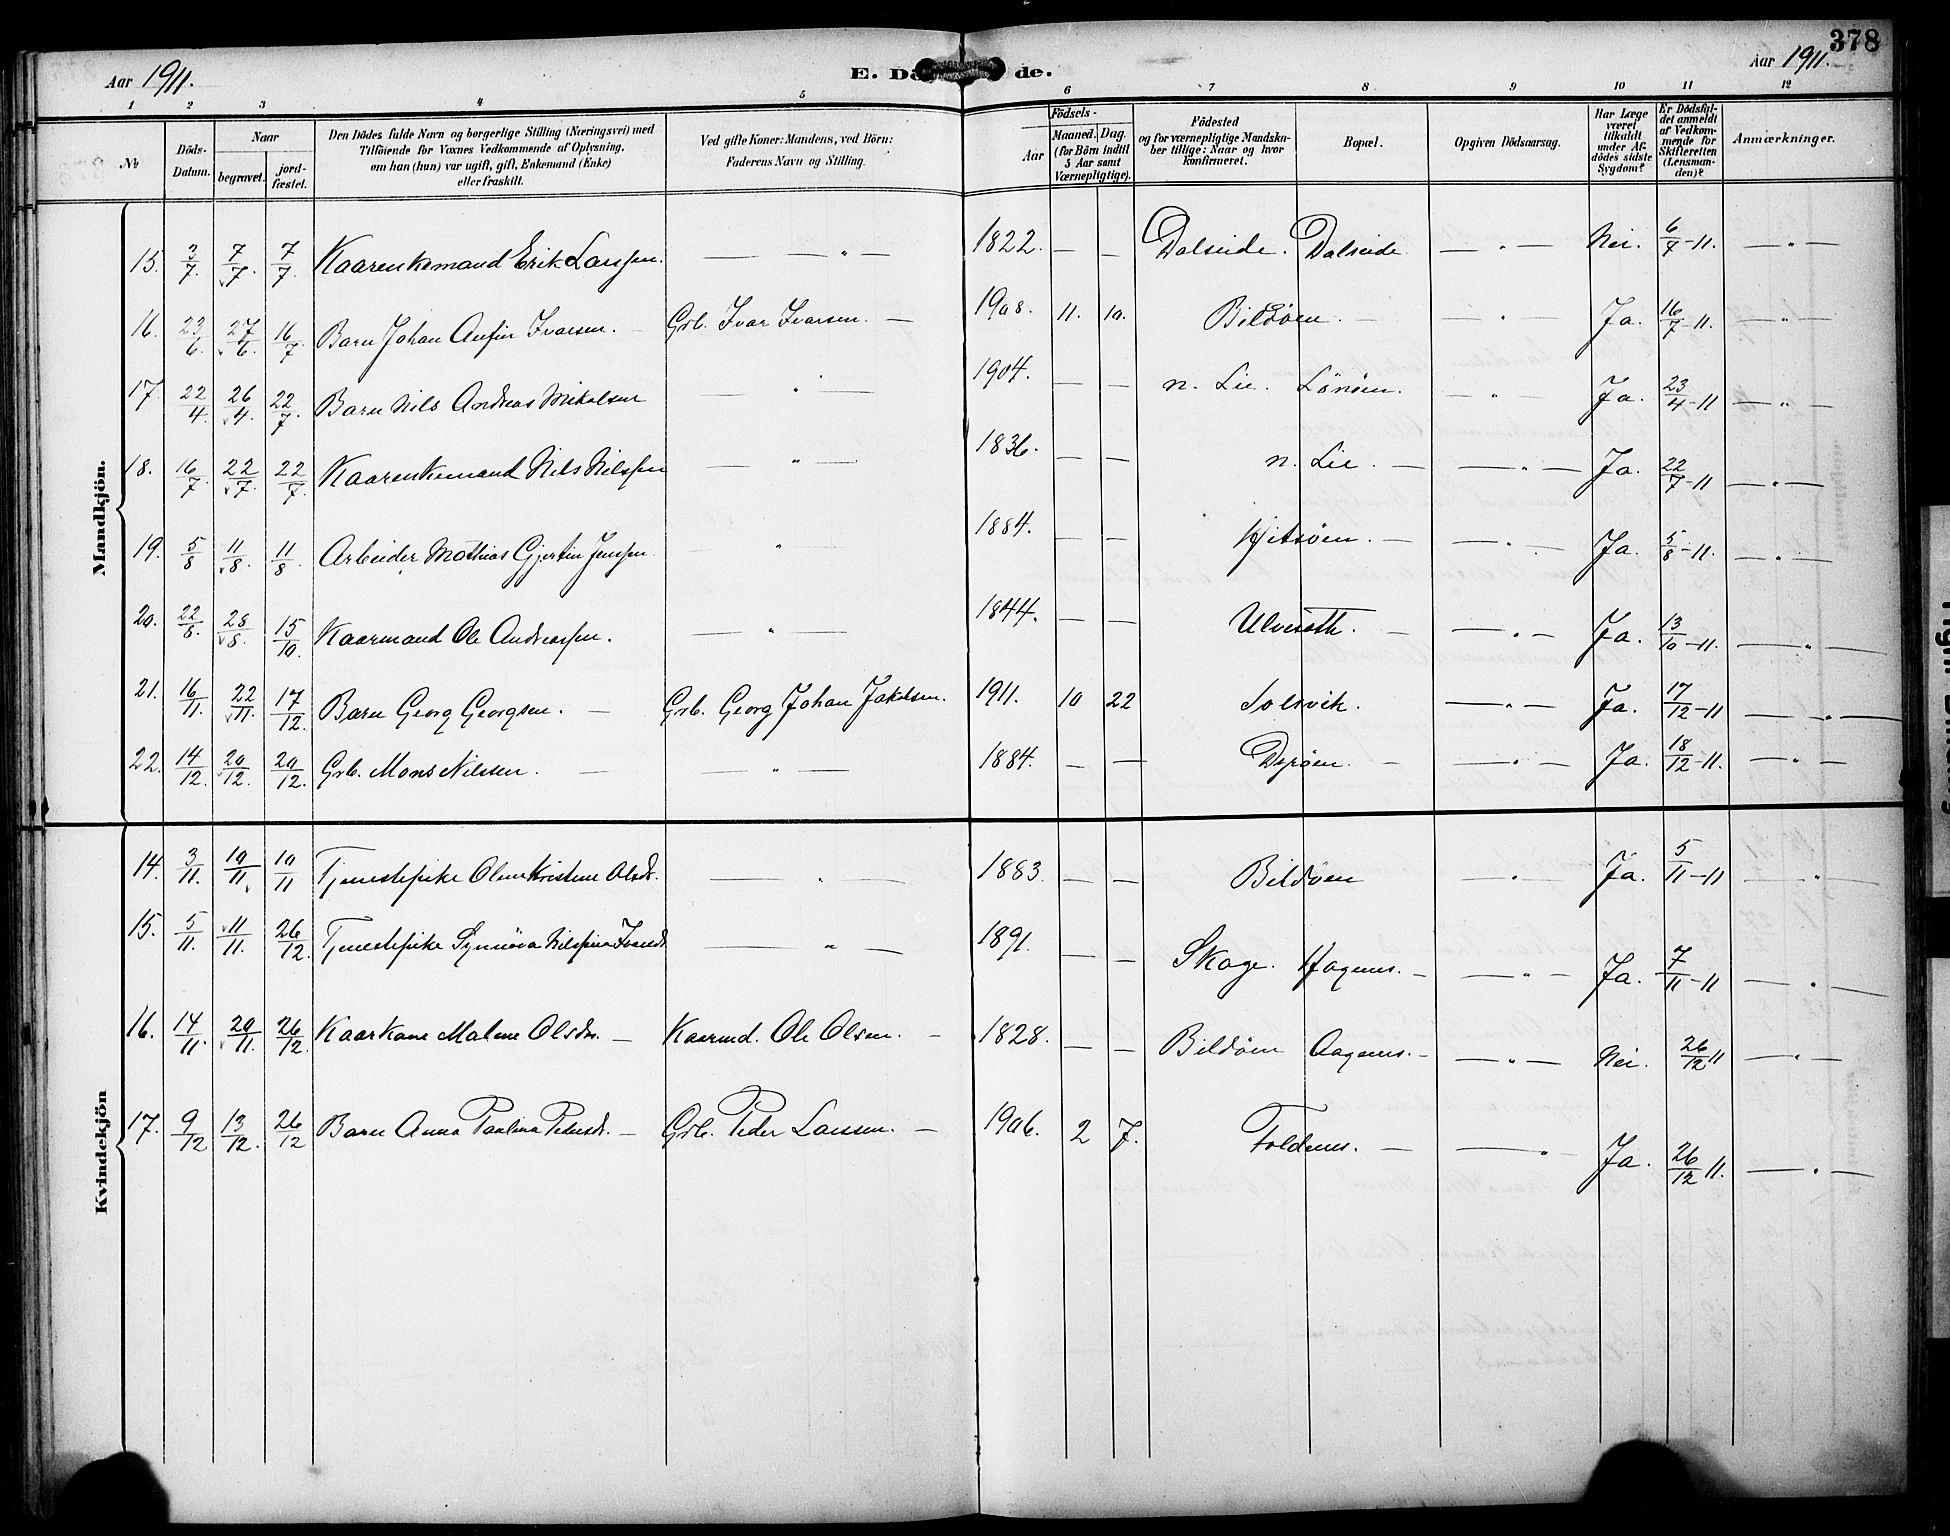 378
Aar 1911. E. Dö de. Aar 1911.
1 2 3 4 5 6 7 8 9 10 11 12
No
Döds-Datum.
Naar
begravet.
jord-fæstet.
Den Dödes fulde Navn og borgerlige Stilling (Næringsvei) med
Tilföiende for Voxnes Vedkommende af Oplysning,
om han (hun) var ugift, gift, Enkemand (Enke)
eller fraskilt.
Ved gifte Koner: Mandens, ved Börn:
Faderens Navn og Stilling.
Födsels-
Aar
Maaned. Dag.
(for Börn indtil
5 Aar samt
Værnepligtige).
Födested
og for værnepligtige Mandska-
ber tillige: Naar og hvor
konfirmeret.
Bopæl.
Opgiven Dödsaarsag.
Har Læge
været
tilkaldt
under Af-
dödes sidste
Sygdom?
Er Dödsfal-
det anmeldt
af Vedkom-
mende for
Skifteretten
(Lensman-
den)?
Anmærkninger.
Mandkjön.
15. 3/7. 7/7. 7/7. Kaarenkemand Erik Larssen. — — " — 1822. — — Dalseide. Dalseide. — " — Nei. 6/7-11. — " —
16. 23/6. 27/6. 16/7. Barn Johan Anfin Ivarsen. — Grb. Ivar Ivarsen. — 1908. 11. 10. Bildöen. — — " Ja. 16/7-11. — " —
17. 22/4. 26/4. 22/7. Barn Nils Andreas Mikalsen — " — 1904. — — n. Lie. Lönöen. — " — Ja. 23/4-11 — " —
18. 16/7. 22/7. 22/7. Kaarenkemand Nils Nilssen — " — 1836. — — n. Lie. — — " — Ja. 22/7-11 — " —
19. 5/8 11/8. 11/8 Arbeider Mathias Gjertin Jenssen — " — 1884. — — Kjitsöen. — — " — Ja. 5/8-11. — " —
20. 22/8. 28/8. 15/10 Kaarmand Ole Andreassen. — " — 1844. — — Ulveseth. — — " — Ja. 13/10-11. — " —
21. 16/11. 22/11. 17/12. Barn Georg Georgsen. — Grb. Georg Johan Jakobsen. 1911. 10 22 Solsvik. — " — Ja. 17/12-11 — " —
22. 14/12. 20/12. 20/12. Grb. Mons Nilssen. — — " — 1884. — — Dyröen. — — " — Ja. 18/12-11. — " —
Kvindekjön
14. 3/11. 10/11. 10/11 Tjenestepike Oline Kristine Olsdr. — " — 1883. — — Bildöen — " — Ja. 5/11-11 — " —
15. 5/11. 11/11. 26/12. Tjenestepike Synnöva Nilssine Ivarsdr. — " — 1891. — — Skage. Hagenes. — — " — Ja. 7/11-11 — " —
16. 14/11. 20/11. 26/12. Kaarkone Malene Olsdr. — Kaarmd. Ole Olsen. — 1828. — — Bildöen Aagenes. — — " — Nei. 26/12 11 — " —
17. 9/12 13/12. 26/12 Barn Anna Paulina Pedersdr. — Grb. Peder Larssen. — 1906. 2 7. Foldenes. — — " Ja. 26/12 11. — " —